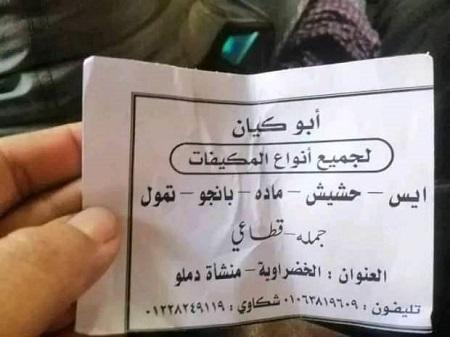 أبو كيان
لجميع أنواع المكيفات
ايس - حشيش - ماده - بانجو - تمول
جمله - قطاعي
العنوان : الخضراوية - منشأة دملو
تليفون : ٠١٠٦٣٨١٩٦٠٩ شكاوي : ٠١٢٢٨٢٤٩١١٩